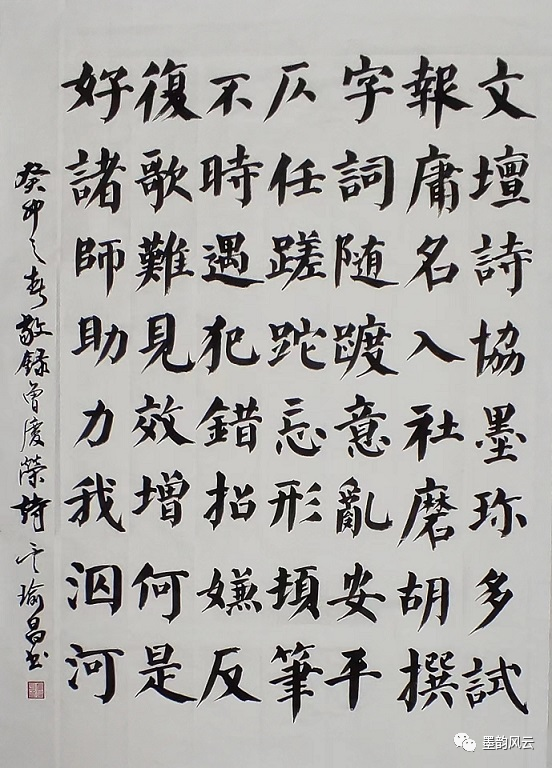 文壇詩協墨珎多試
報庸名入社磨胡撰
字詞随踱意亂安平
仄任蹉跎忘形頓筆
不時遇犯錯招嫌反
復歌難見效增何是
好諸師助力我泅河
癸卯之春敬録曾度榮詩 瑜昌书
墨韵风云